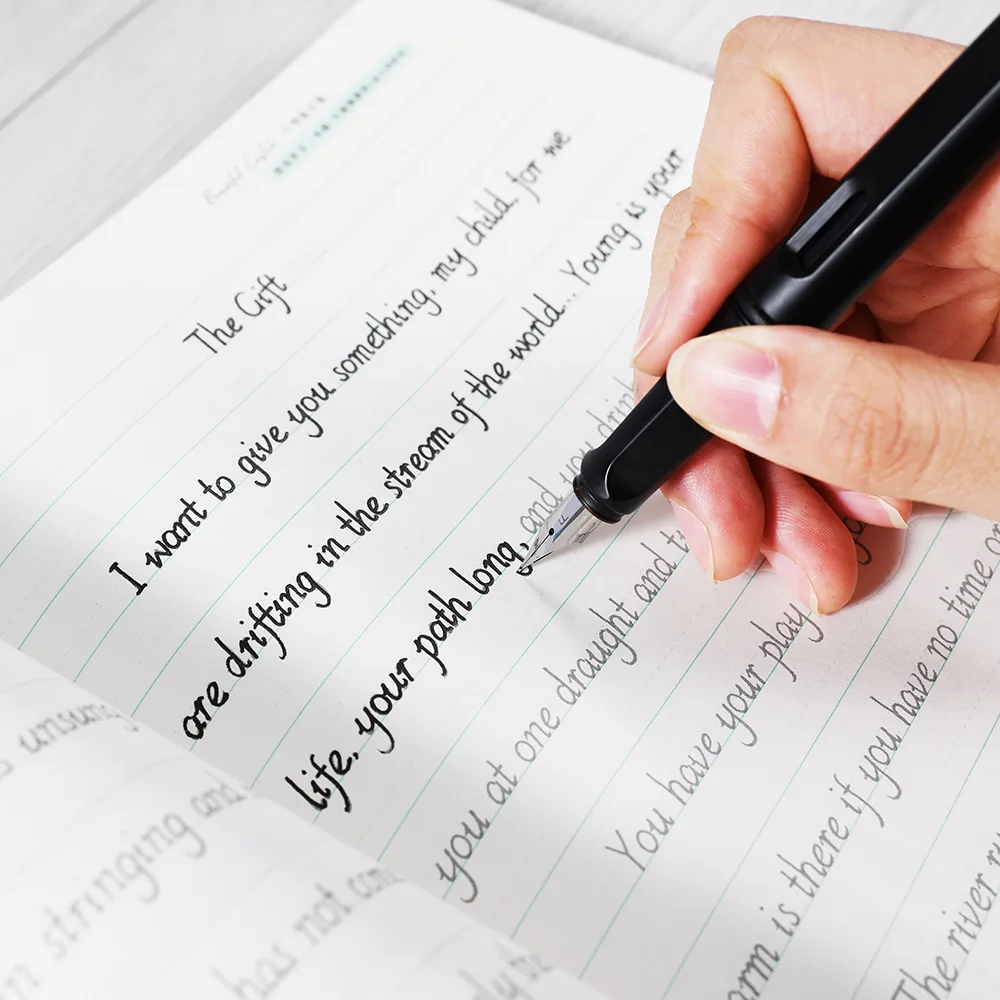 The Gift
I want to give you something, my child. for we
are drifting in the stream of the world.. Young is your
life, your path long, and you drink
you at one draught and t
You have your play
orm is there if you have no time or
The river ru
s unsung
n stringing and
has not com